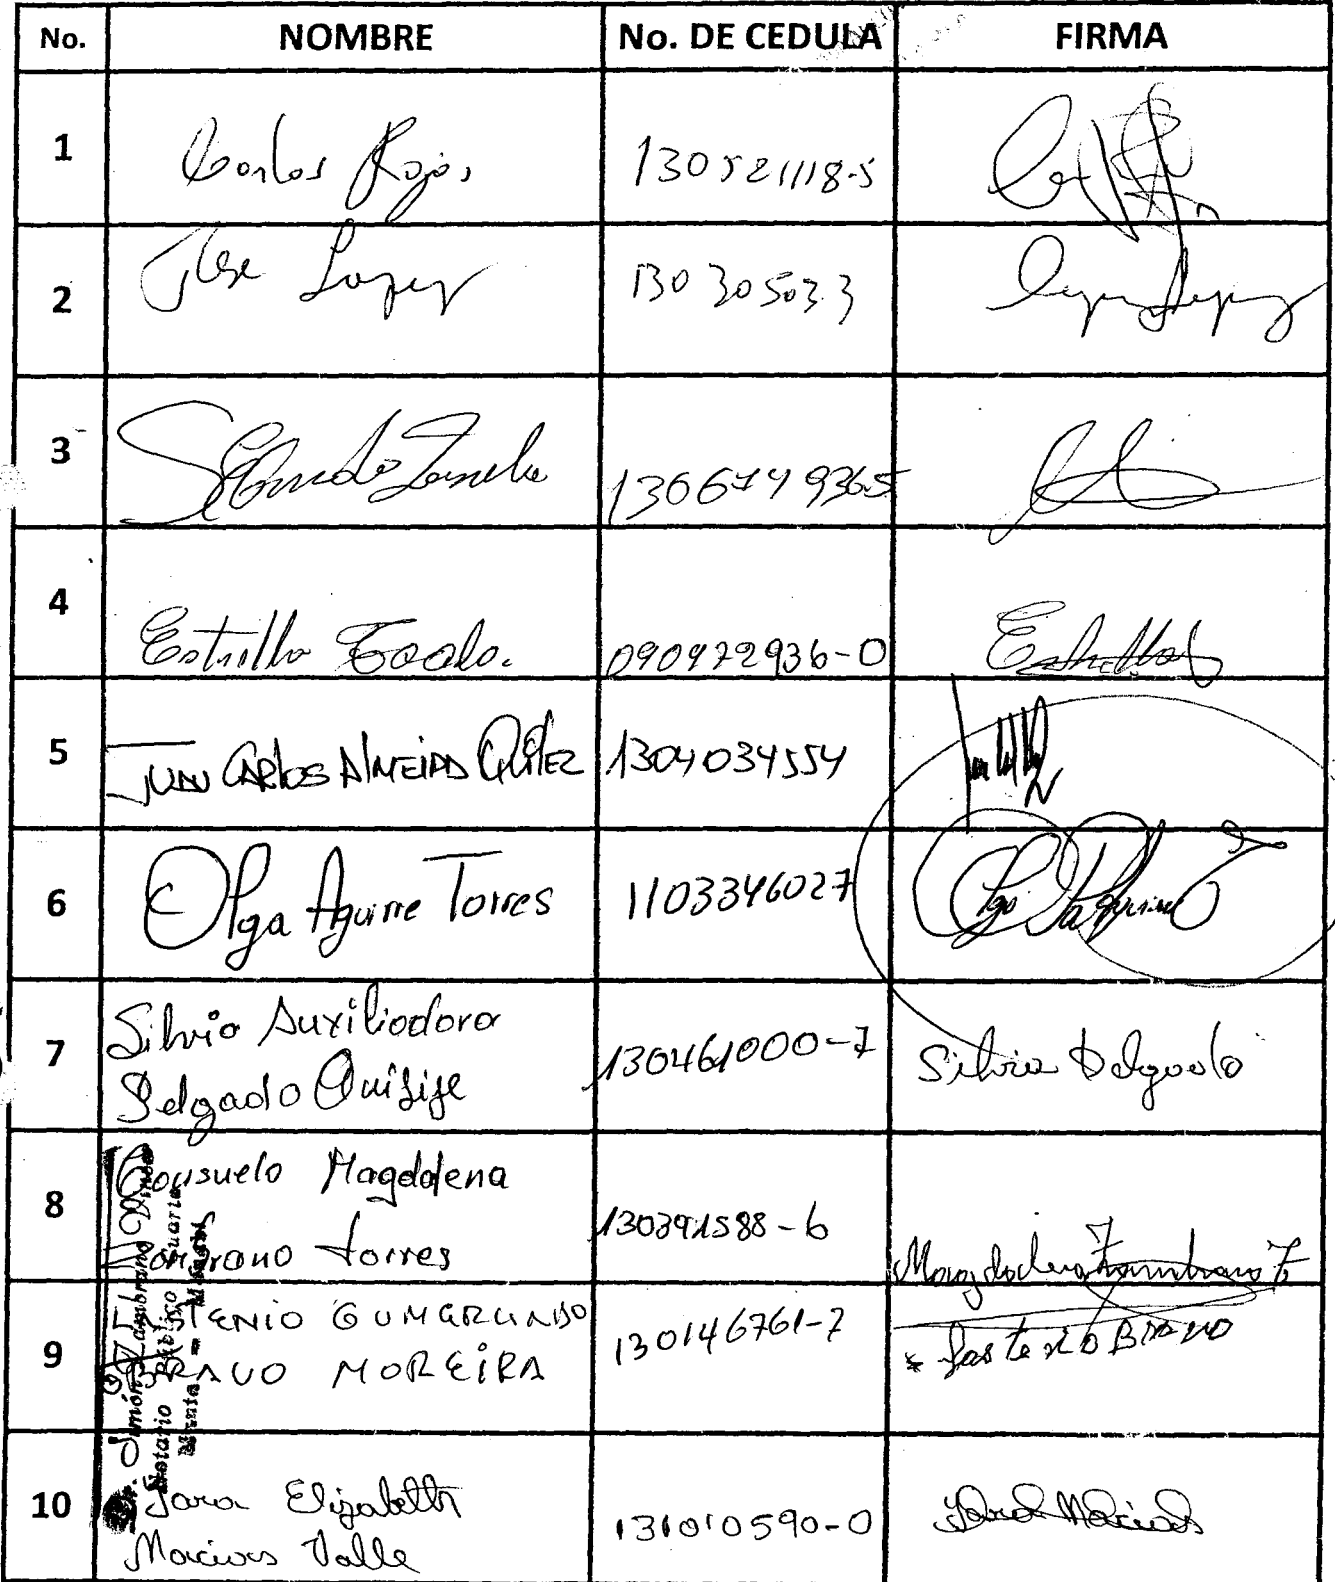 No. NOMBRE No. DE CEDULA FIRMA
1 Carlos Rojas 130521118-5
2 Jose Lopez 130305033
3 1306749365
4 Estrella 090972936-0 Estrella
5 JUAN CARLOS ALMEIDA 1304034554
6 Olga Aguirre Torres 1103346027
7 Silvia Auxiliadora
Delgado Quijije 130461000-7 Silvia Delgado
8 Consuelo Magdalena
Zambrano torres 130391588-6 Magdalena Zambrano T
9 TENIO GUMERCINDO
BRAVO MOREIRA 130146761-7 BRAVO
10 Jara Elizabeth
Macias Valle 131010590-0 Jara Macias
Dr. Simón Zambrano Vinces
Notario Público Cuarto
Manta - Manabí